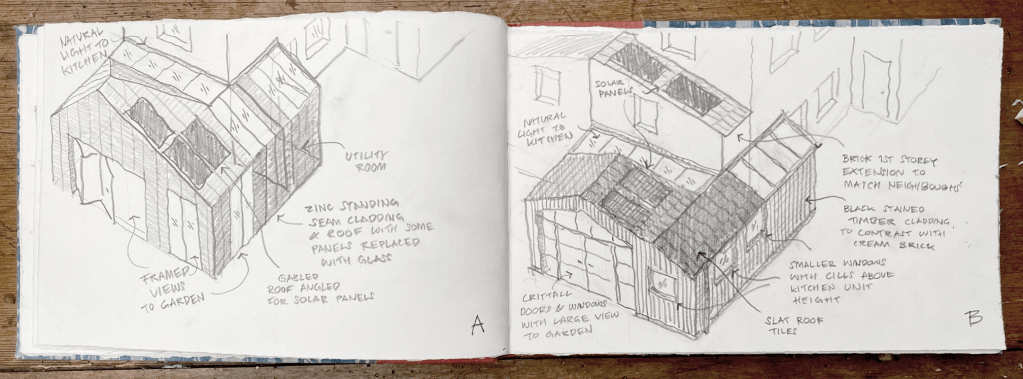 NATURAL
LIGHT TO
KITCHEN
UTILITY
ROOM
ZINC STANDING
SEAM CLADDING
& ROOF WITH SOME
PANELS REPLACED
WITH GLASS
FRAMED
VIEWS
TO GARDEN
GABLED
ROOF ANGLED
FOR SOLAR PANELS
A
SOLAR
PANELS
NATURAL
LIGHT TO
KITCHEN
BRICK 1ST STOREY
EXTENSION TO
MATCH NEIGHBOUGHS'
BLACK STAINED
TIMBER CLADDING
TO CONTRAST WITH
CREAM BRICK
SMALLER WINDOWS
WITH CILLS ABOVE
KITCHEN UNIT
HEIGHT
CRITTALL
DOORS & WINDOWS
WITH LARGE VIEW
TO GARDEN
SLAT ROOF
TILES
B